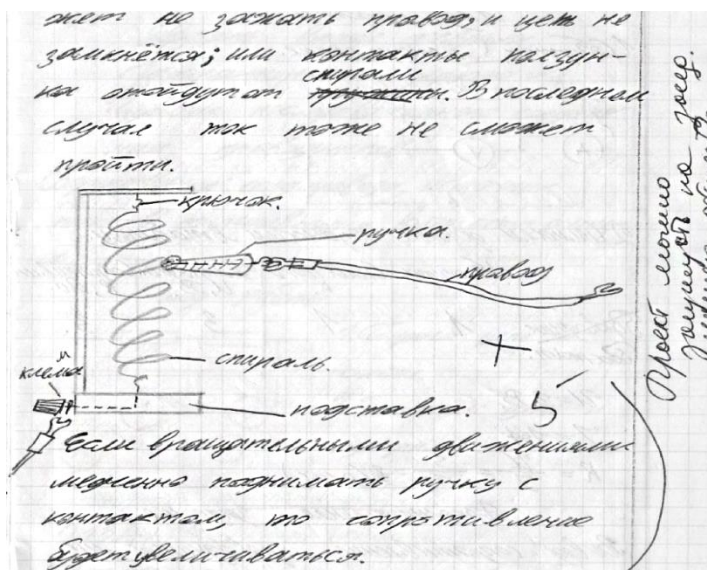 жет не зажать провод, и цепь не
замкнётся; или контакты ползун-
спирали
ка отойдут от пружины. В последнем
случае ток тоже не сможет
пройти.
крючок.
ручка.
провод
спираль.
м
клема
подставка.
+
5
Если вращательными движениями
медленно поднимать ручку с
контактом, то сопротивление
будет увеличиваться.
Проект можно